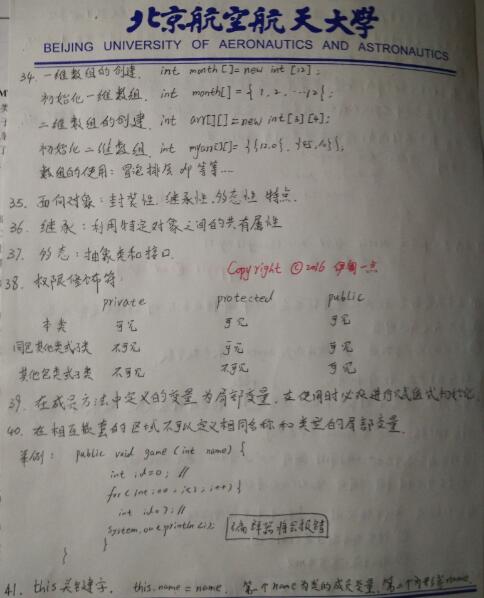 北京航空航天大學
BEIJING UNIVERSITY OF AERONAUTICS AND ASTRONAUTICS
34. 一维数组的创建. int month[]=new int[12];
初始化一维数组. int month[]={1,2,…12};
二维数组的创建. int arr[][]=new int[2][4];
初始化二维数组. int myarr[][]={{12,0},{45,10}};
数组的使用: 冒泡排序 等等…
35. 面向对象: 封装性. 继承性. 多态性 特点.
36. 继承: 利用特定对象之间的共有属性
37. 多态: 抽象类和接口.
Copyright © 2016 伊甸一点
38. 权限修饰符:
private protected public
本类 可见 可见 可见
同包其他类或子类 不可见 可见 可见
其他包类或子类 不可见 不可见 可见
39. 在成员方法中定义的变量为局部变量. 在使用时必须进行赋值或初始化
40. 在相互嵌套的区域不可以定义相同名称和类型的局部变量.
举例: public void game (int name) {
int id=0; //
for(int i=0; i<; i++) {
int id=7; //
System.out.println(i); 编译器将会报错
}
}
41. this关键字. this.name = name. 第一个name为类的成员变量, 第二个为形参name.